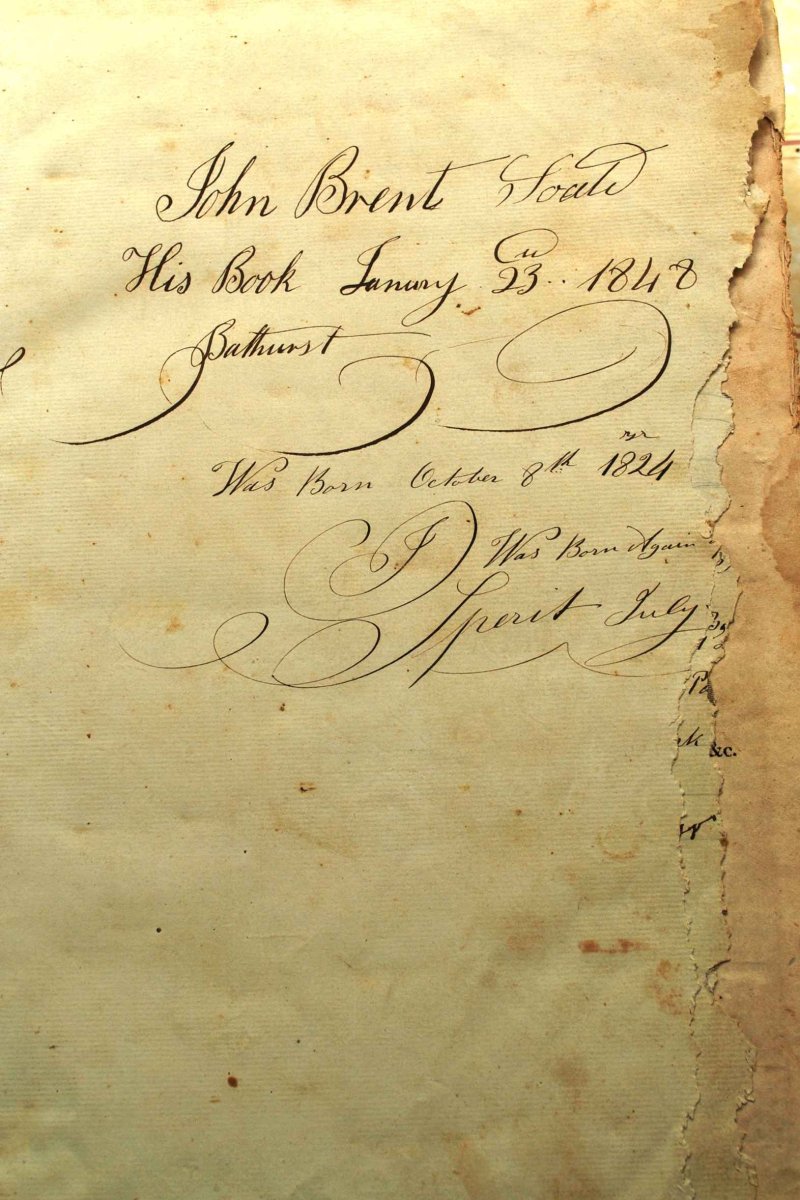 John Brent Soale
His Book Janury 23 1848
Bathurst
Was Born October 8th 1824
I Was Born Again
Sperit July
&c.